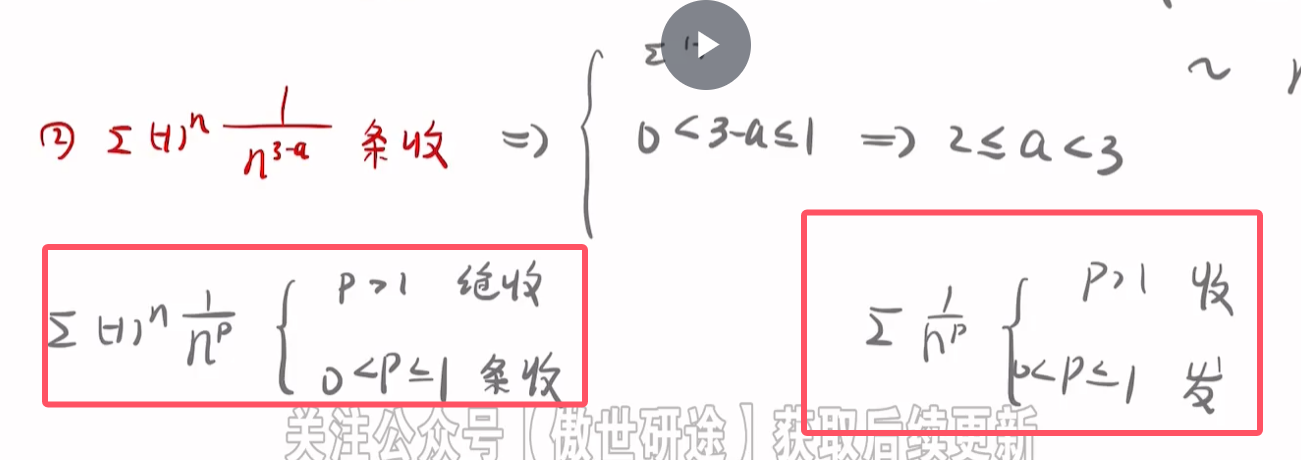 ② Σ (-1)ⁿ 1/n^(3-a) 条收 ⇒ { 0 < 3-a ≤ 1 ⇒ 2 ≤ a < 3
Σ (-1)ⁿ 1/n^p { p > 1 绝收
0 < p ≤ 1 条收
Σ 1/n^p { p > 1 收
0 < p ≤ 1 发
关注公众号【傲世研途】获取后续更新